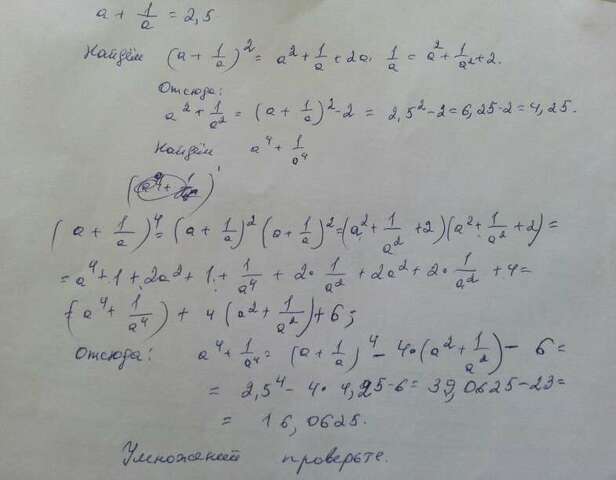 a + 1/a = 2,5
Найдём (a + 1/a)² = a² + 1/a + 2a · 1/a = a² + 1/a² + 2.
Отсюда:
a² + 1/a² = (a + 1/a)² - 2 = 2,5² - 2 = 6,25 - 2 = 4,25.
Найдём a⁴ + 1/a⁴
(a + 1/a)⁴ = (a + 1/a)² (a + 1/a)² = (a² + 1/a² + 2)(a² + 1/a² + 2) =
= a⁴ + 1 + 2a² + 1 + 1/a⁴ + 2 · 1/a² + 2a² + 2 · 1/a² + 4 =
= (a⁴ + 1/a⁴) + 4(a² + 1/a²) + 6;
Отсюда: a⁴ + 1/a⁴ = (a + 1/a)⁴ - 4 · (a² + 1/a²) - 6 =
= 2,5⁴ - 4 · 4,25 - 6 = 39,0625 - 23 =
= 16,0625.
Умножений проверьте.